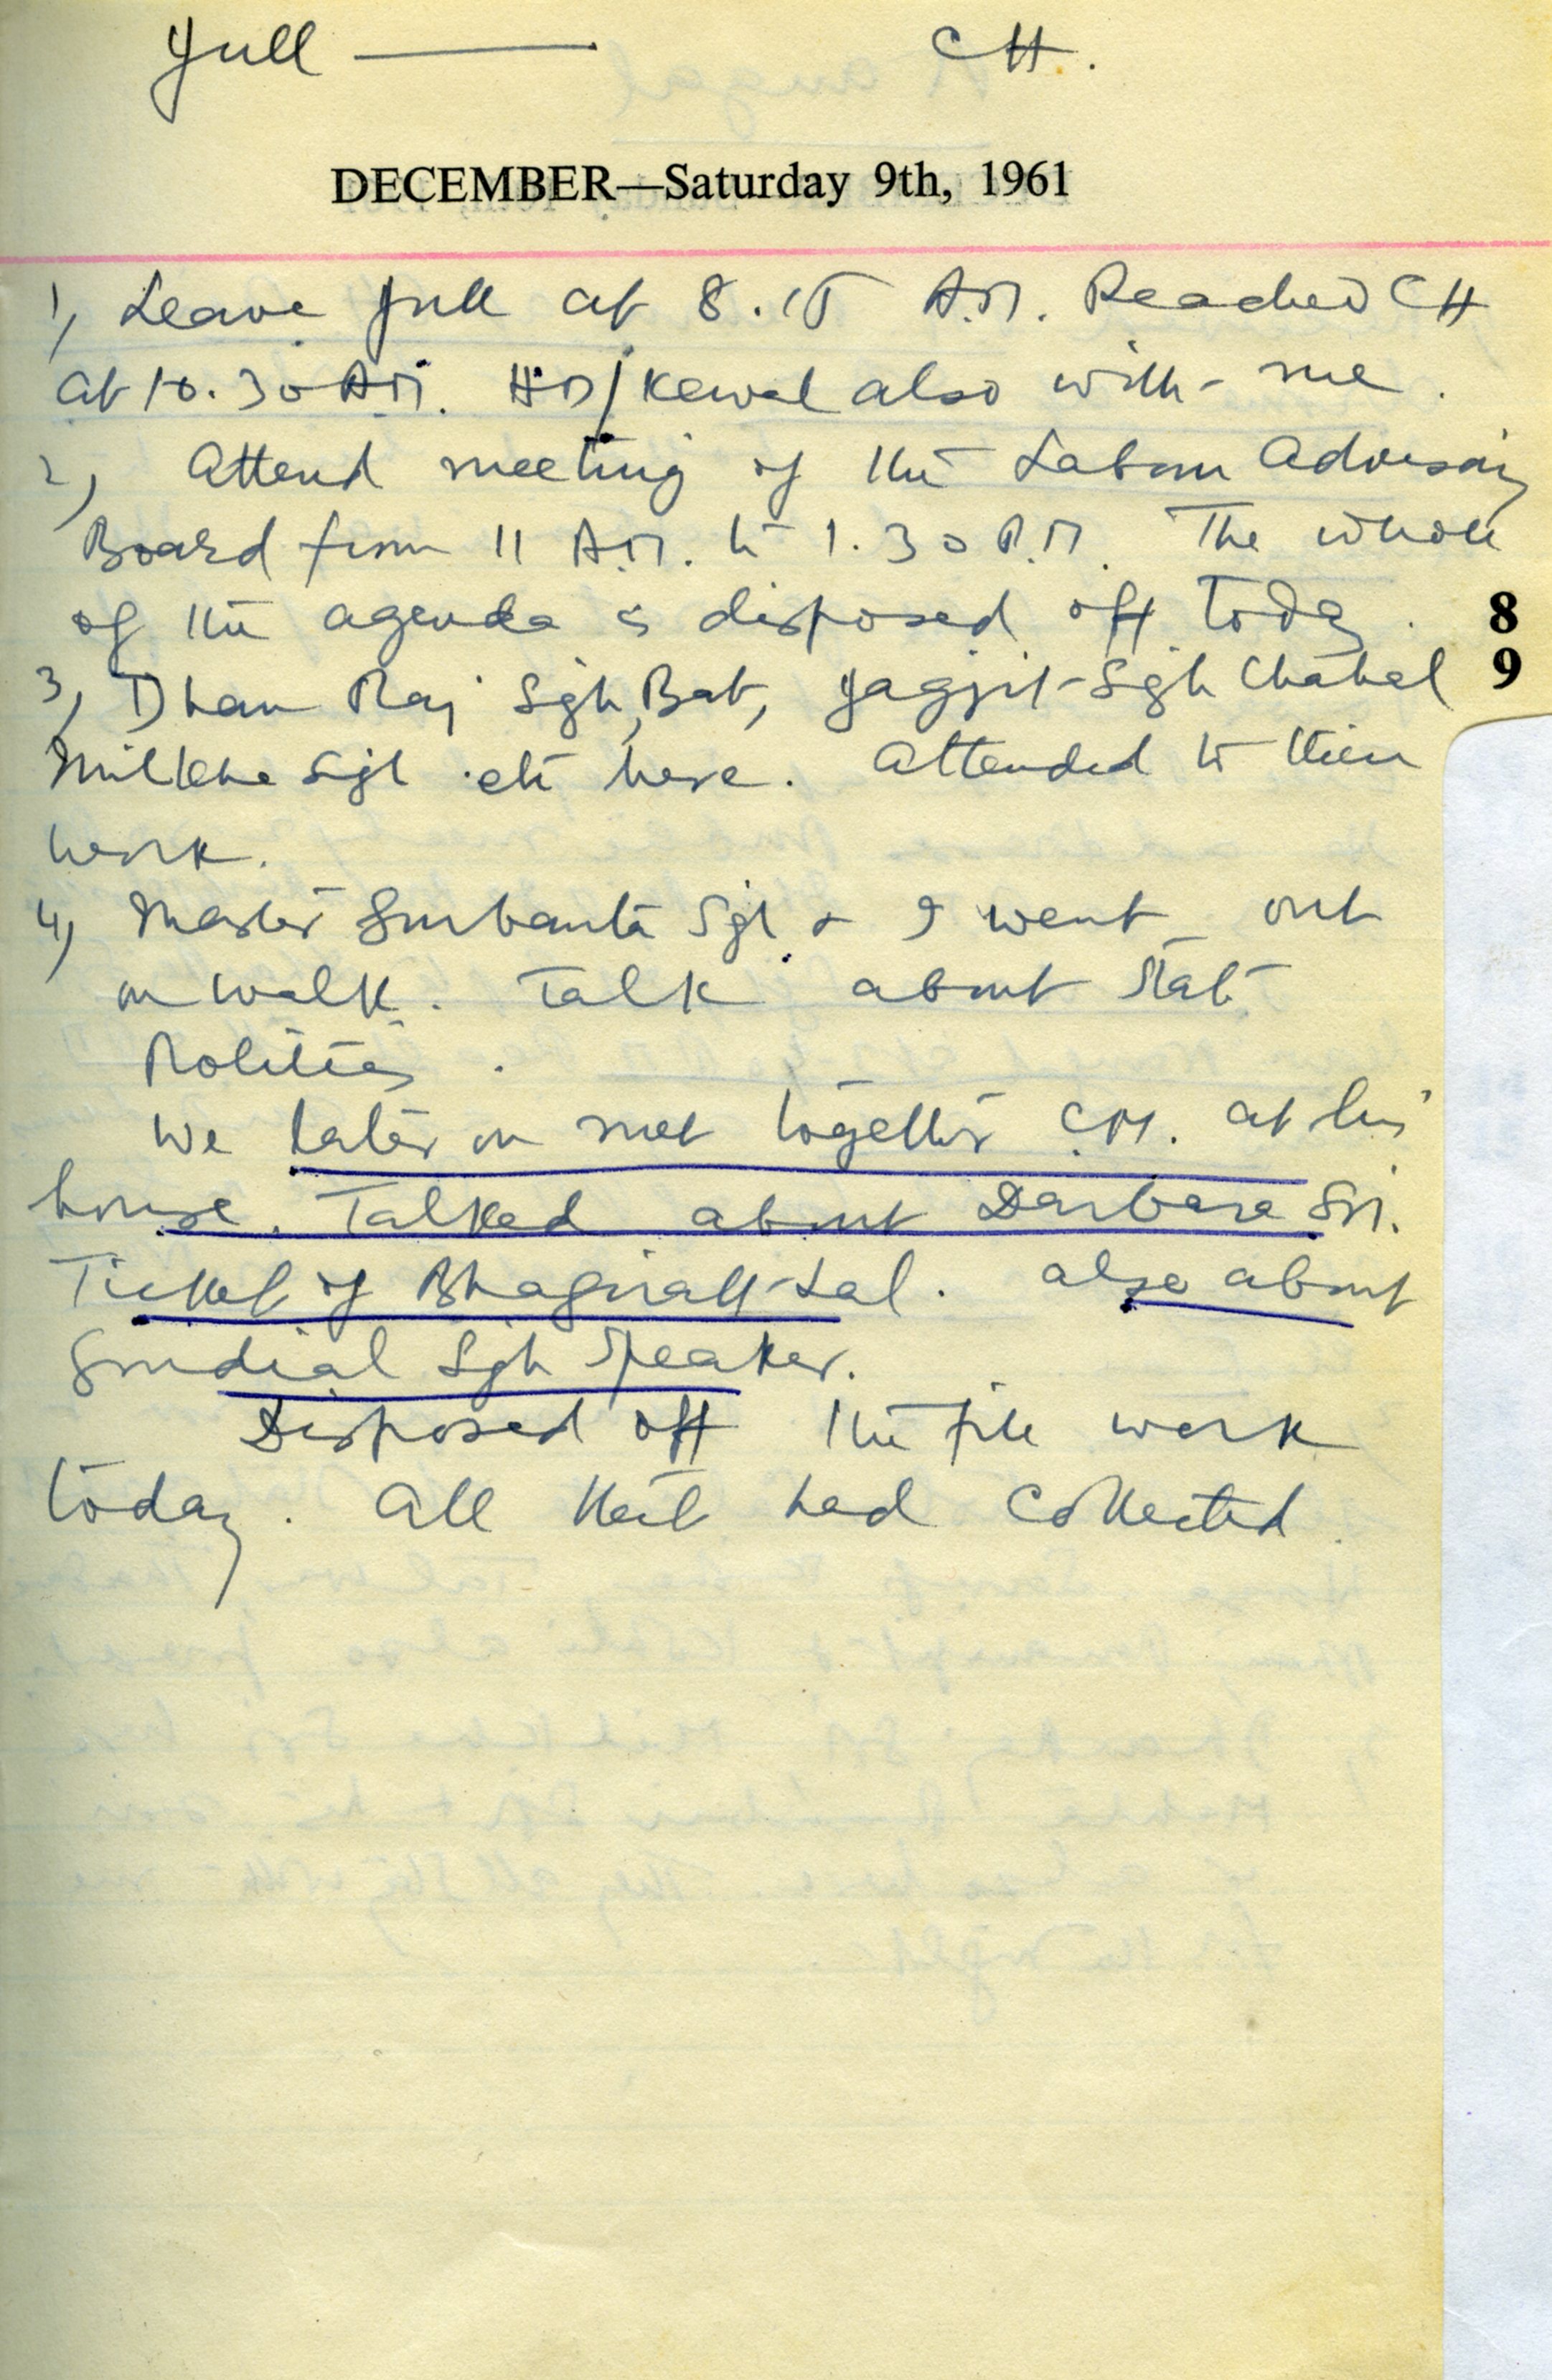 Jull ——— CH.
DECEMBER—Saturday 9th, 1961
1) Leave Jull at 8.15 A.M. Reached CH
at 10.30 A.M. HM/Kewal also with me.
2) Attend meeting of the Labour Advisory
Board from 11 A.M. to 1.30 P.M. The whole
of the agenda is disposed off today.
8
3) Dhan Raj Sgh, Bat, Jagjit Sgh Chahal
9
Milkha Sgh etc here. Attended to their
work.
4) Master Gurbanta Sgh & I went out
on walk. Talk about State
Politics.
We later on met together C.M. at his
house. Talked about Darbara SM.
Ticket of Bhagirath Lal. also about
Gurdial Sgh Speaker.
Disposed off the file work
today. All that had collected.